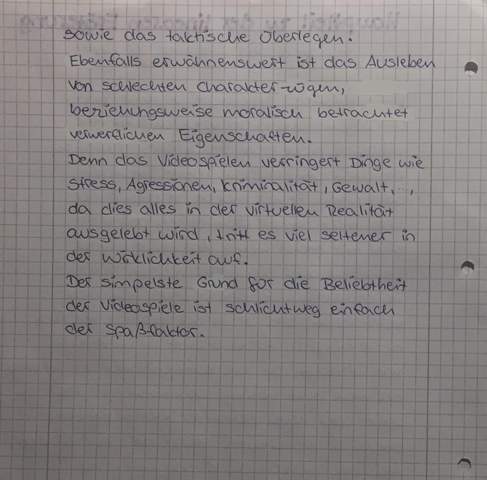 sowie das taktische Überlegen.
Ebenfalls erwähnenswert ist das Ausleben
von schlechten Charakterzügen,
beziehungsweise moralisch betrachtet
verwerflichen Eigenschaften.
Denn das Videospielen verringert Dinge wie
Stress, Agressionen, Kriminalität, Gewalt, ...,
da dies alles in der virtuellen Realität
ausgelebt wird, tritt es viel seltener in
der Wirklichkeit auf.
Der simpelste Grund für die Beliebtheit
der Videospiele ist schlichtweg einfach
der Spaßfaktor.